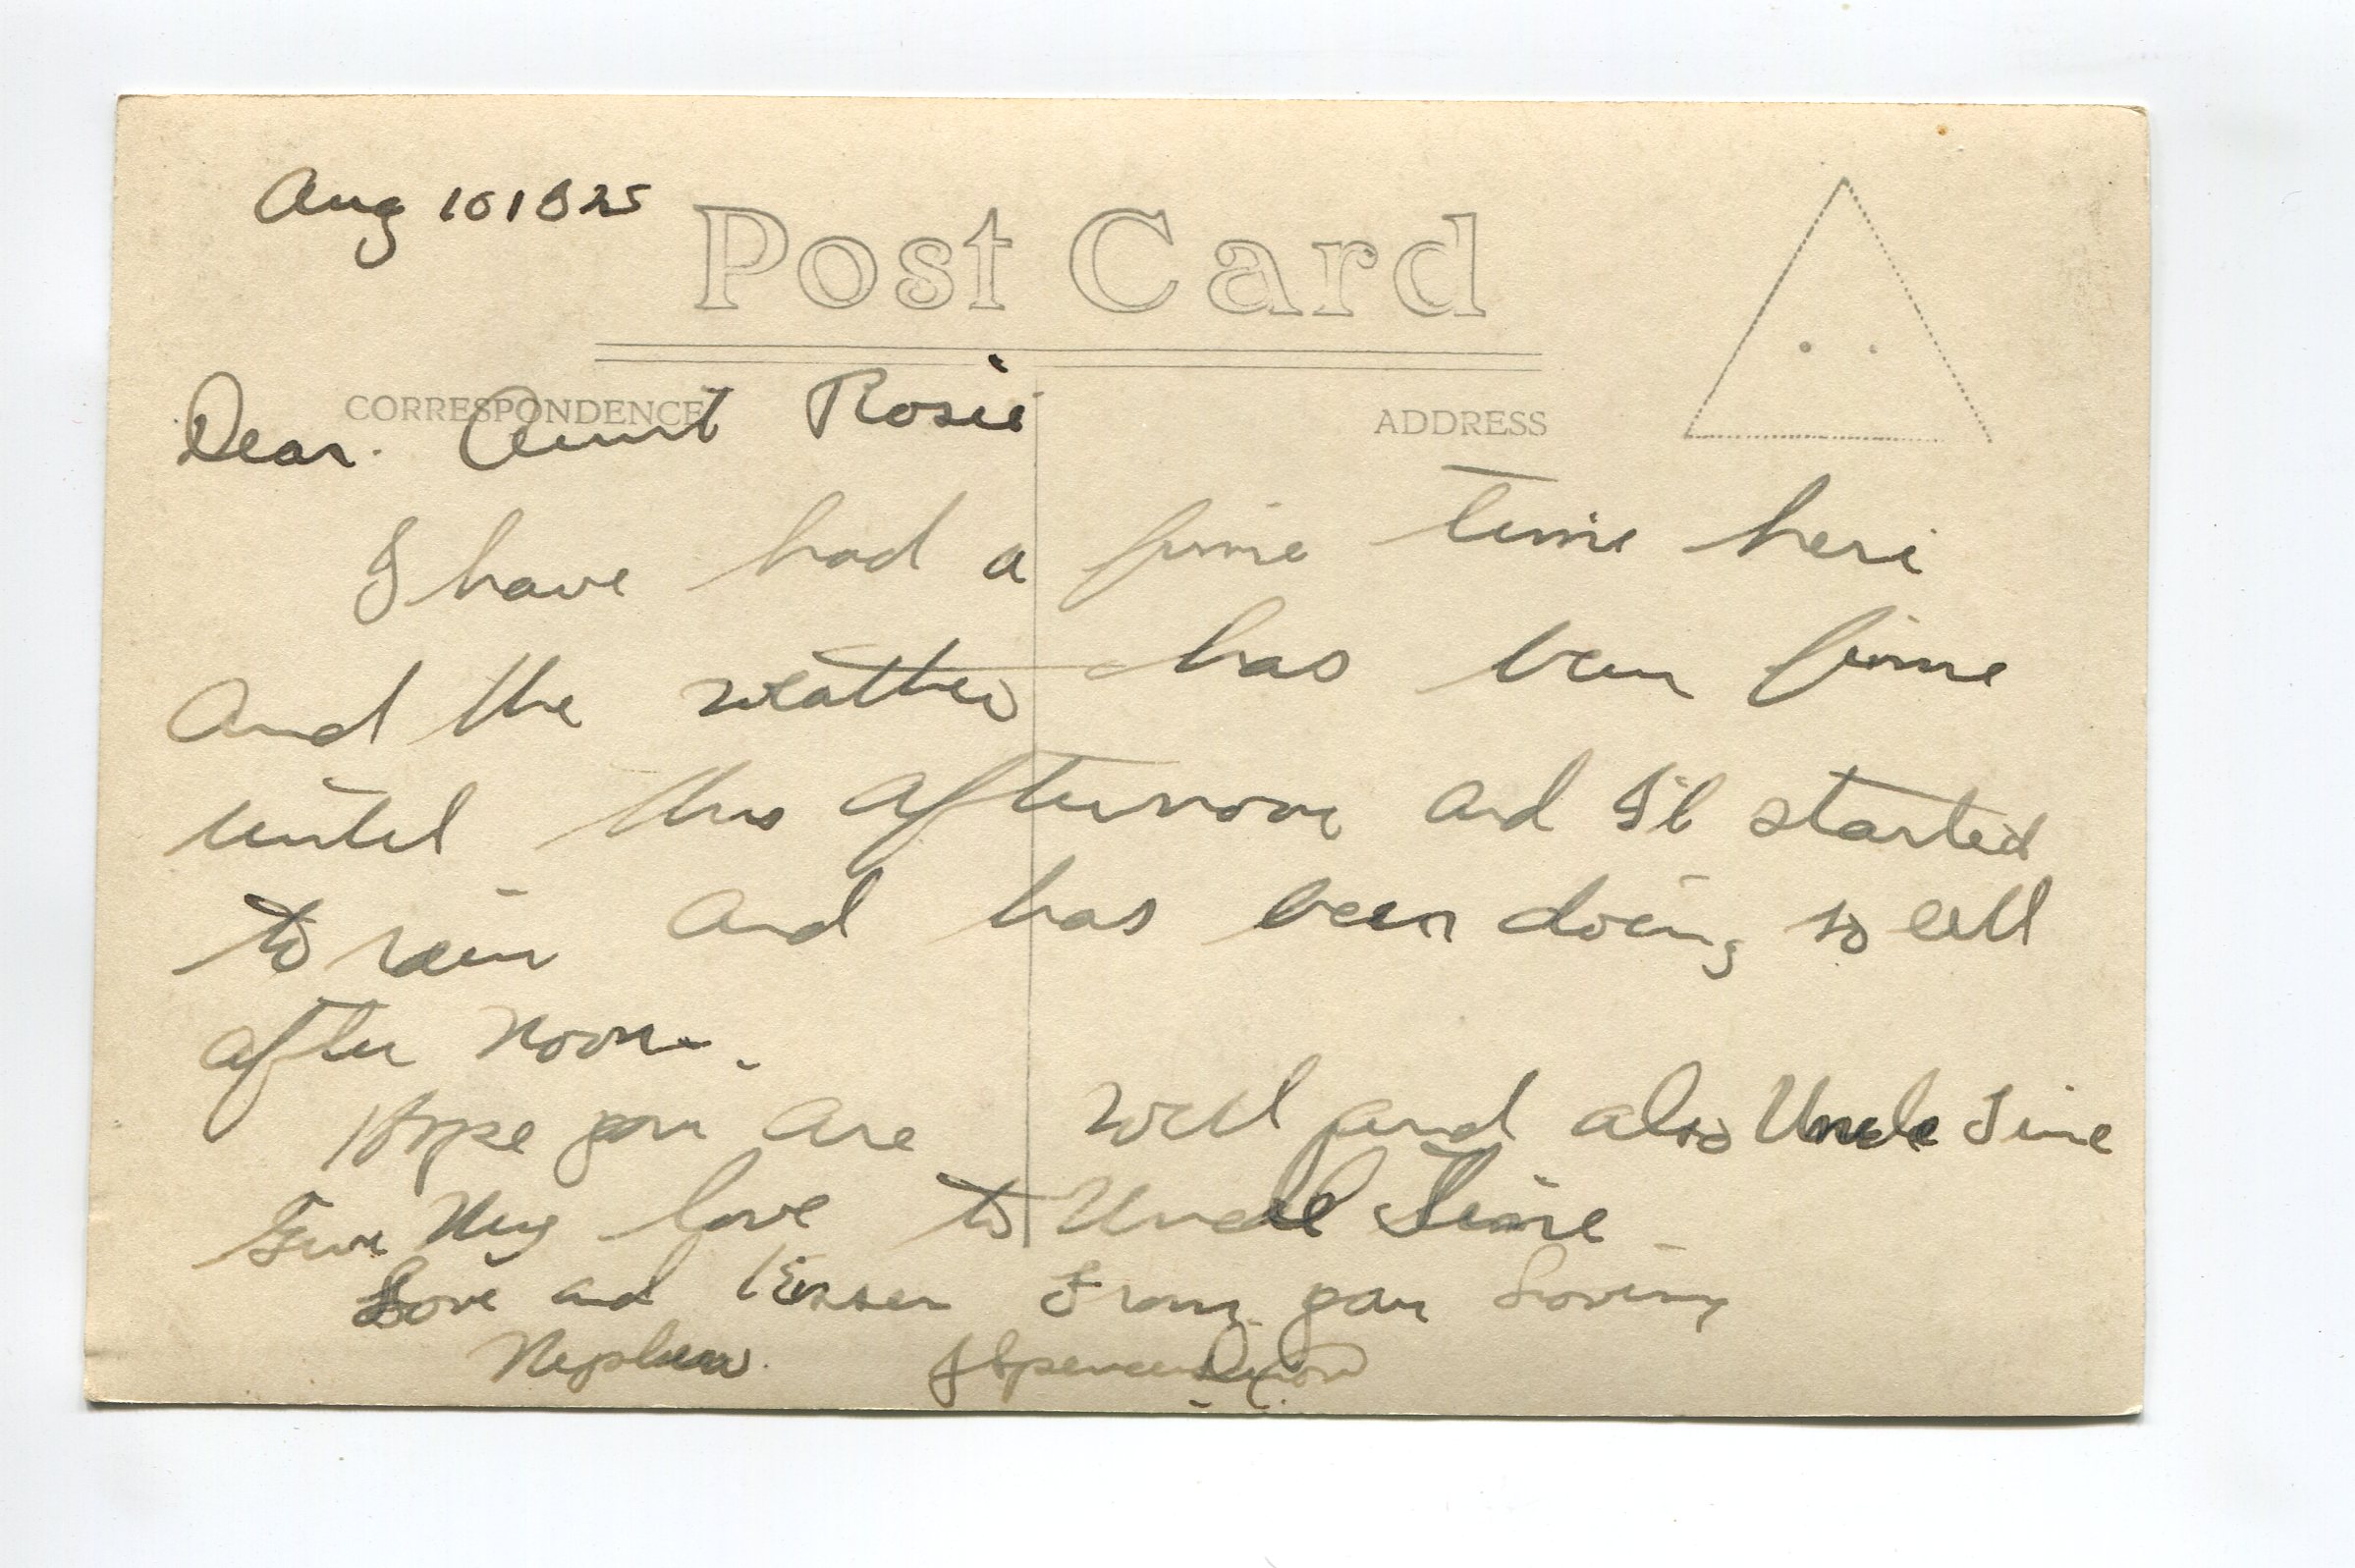 Aug 10 1825
Post Card
CORRESPONDENCE
ADDRESS
Dear. Aunt Rosie
I have had a fine time here
And the weather has been fine
until this afternoon and It started
to rain and has been doing so all
after noon.
Hope you are well and also Uncle
Give My love to Uncle
Love and Kisses From your Loving
Nephew. Spencer